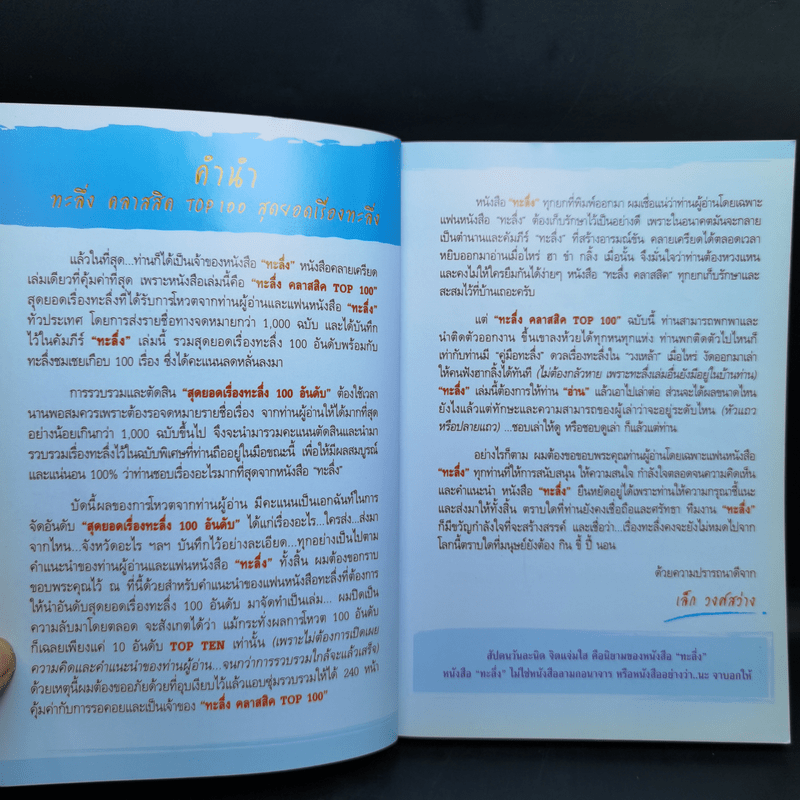 คำนำ
ทะลึ่ง คลาสสิค TOP 100 สุดยอดเรื่องทะลึ่ง
แล้วในที่สุด...ท่านก็ได้เป็นเจ้าของหนังสือ “ทะลึ่ง” หนังสือคลายเครียด
เล่มเดียวที่คุ้มค่าที่สุด เพราะหนังสือเล่มนี้คือ “ทะลึ่ง คลาสสิค TOP 100”
สุดยอดเรื่องทะลึ่งที่ได้รับการโหวตจากท่านผู้อ่านและแฟนหนังสือ “ทะลึ่ง”
ทั่วประเทศ โดยการส่งรายชื่อทางจดหมายกว่า 1,000 ฉบับ และได้บันทึก
ไว้ในคัมภีร์ “ทะลึ่ง” เล่มนี้ รวมสุดยอดเรื่องทะลึ่ง 100 อันดับพร้อมกับ
ทะลึ่งชมเชยเกือบ 100 เรื่อง ซึ่งได้คะแนนลดหลั่นลงมา
การรวบรวมและตัดสิน “สุดยอดเรื่องทะลึ่ง 100 อันดับ” ต้องใช้เวลา
นานพอสมควรเพราะต้องรอจดหมายรายชื่อเรื่อง จากท่านผู้อ่านให้ได้มากที่สุด
อย่างน้อยเกินกว่า 1,000 ฉบับขึ้นไป จึงจะนำมารวมคะแนนตัดสินและนำมา
รวบรวมเรื่องทะลึ่งไว้ในฉบับพิเศษที่ท่านถืออยู่ในมือขณะนี้ เพื่อให้มีผลสมบูรณ์
และแน่นอน 100% ว่าท่านชอบเรื่องอะไรมากที่สุดจากหนังสือ “ทะลึ่ง”
บัดนี้ผลของการโหวตจากท่านผู้อ่าน มีคะแนนเป็นเอกฉันท์ในการ
จัดอันดับ “สุดยอดเรื่องทะลึ่ง 100 อันดับ” ได้แก่เรื่องอะไร...ใครส่ง...ส่งมา
จากไหน...จังหวัดอะไร ฯลฯ บันทึกไว้อย่างละเอียด...ทุกอย่างเป็นไปตาม
คำแนะนำของท่านผู้อ่านและแฟนหนังสือ “ทะลึ่ง” ทั้งสิ้น ผมต้องขอกราบ
ขอบพระคุณไว้ ณ ที่นี้ด้วยสำหรับคำแนะนำของแฟนหนังสือทะลึ่งที่ต้องการ
ให้นำอันดับสุดยอดเรื่องทะลึ่ง 100 อันดับ มาจัดทำเป็นเล่ม... ผมปิดเป็น
ความลับมาโดยตลอด จะสังเกตได้ว่า แม้กระทั่งผลการโหวต 100 อันดับ
ก็เฉลยเพียงแค่ 10 อันดับ TOP TEN เท่านั้น (เพราะไม่ต้องการเปิดเผย
ความคิดและคำแนะนำของท่านผู้อ่าน...จนกว่าการรวบรวมใกล้จะแล้วเสร็จ)
ด้วยเหตุนี้ผมต้องขออภัยด้วยที่อุบเงียบไว้แล้วแอบซุ่มรวบรวมให้ได้ 240 หน้า
คุ้มค่ากับการรอคอยและเป็นเจ้าของ “ทะลึ่ง คลาสสิค TOP 100”
หนังสือ “ทะลึ่ง” ทุกยกที่พิมพ์ออกมา ผมเชื่อแน่ว่าท่านผู้อ่านโดยเฉพาะ
แฟนหนังสือ “ทะลึ่ง” ต้องเก็บรักษาไว้เป็นอย่างดี เพราะในอนาคตมันจะกลาย
เป็นตำนานและคัมภีร์ “ทะลึ่ง” ที่สร้างอารมณ์ขัน คลายเครียดได้ตลอดเวลา
หยิบออกมาอ่านเมื่อไหร่ ฮา ขำ กลิ้ง เมื่อนั้น จึงมั่นใจว่าท่านต้องหวงแหน
และคงไม่ให้ใครยืมกันได้ง่ายๆ หนังสือ “ทะลึ่ง คลาสสิค” ทุกยกเก็บรักษาและ
สะสมไว้ที่บ้านเถอะครับ
แต่ “ทะลึ่ง คลาสสิค TOP 100” ฉบับนี้ ท่านสามารถพกพาและ
นำติดตัวออกงาน ขึ้นเขาลงห้วยได้ทุกหนทุกแห่ง ท่านพกติดตัวไปไหนก็
เท่ากับท่านมี “คู่มือทะลึ่ง” ดวลเรื่องทะลึ่งใน “วงเหล้า” เมื่อไหร่ งัดออกมาเล่า
ให้คนฟังฮากลิ้งได้ทันที (ไม่ต้องกลัวหาย เพราะทะลึ่งเล่มอื่นยังมีอยู่ในบ้านท่าน)
“ทะลึ่ง” เล่มนี้ต้องการให้ท่าน “อ่าน” แล้วเอาไปเล่าต่อ ส่วนจะได้ผลขนาดไหน
ยังไงแล้วแต่ทักษะและความสามารถของผู้เล่าว่าจะอยู่ระดับไหน (หัวแถว
หรือปลายแถว) ...ชอบเล่าให้ดู หรือชอบดูเล่า ก็แล้วแต่ท่าน
อย่างไรก็ตาม ผมต้องขอขอบพระคุณท่านผู้อ่านโดยเฉพาะแฟนหนังสือ
“ทะลึ่ง” ทุกท่านที่ให้การสนับสนุน ให้ความสนใจ กำลังใจตลอดจนความคิดเห็น
และคำแนะนำ หนังสือ “ทะลึ่ง” ยืนหยัดอยู่ได้เพราะท่านให้ความกรุณาชี้แนะ
และส่งมาให้ทั้งสิ้น ตราบใดที่ท่านยังคงเชื่อถือและศรัทธา ทีมงาน “ทะลึ่ง”
ก็มีขวัญกำลังใจที่จะสร้างสรรค์ และเชื่อว่า...เรื่องทะลึ่งคงจะยังไม่หมดไปจาก
โลกนี้ตราบใดที่มนุษย์ยังต้อง กิน ขี้ ปี้ นอน
ด้วยความปรารถนาดีจาก
เล็ก วงศ์สว่าง
สัปดนวันละนิด จิตแจ่มใส คือนิยามของหนังสือ “ทะลึ่ง”
หนังสือ “ทะลึ่ง” ไม่ใช่หนังสือลามกอนาจาร หรือหนังสืออย่างว่า..นะ จาบอกให้